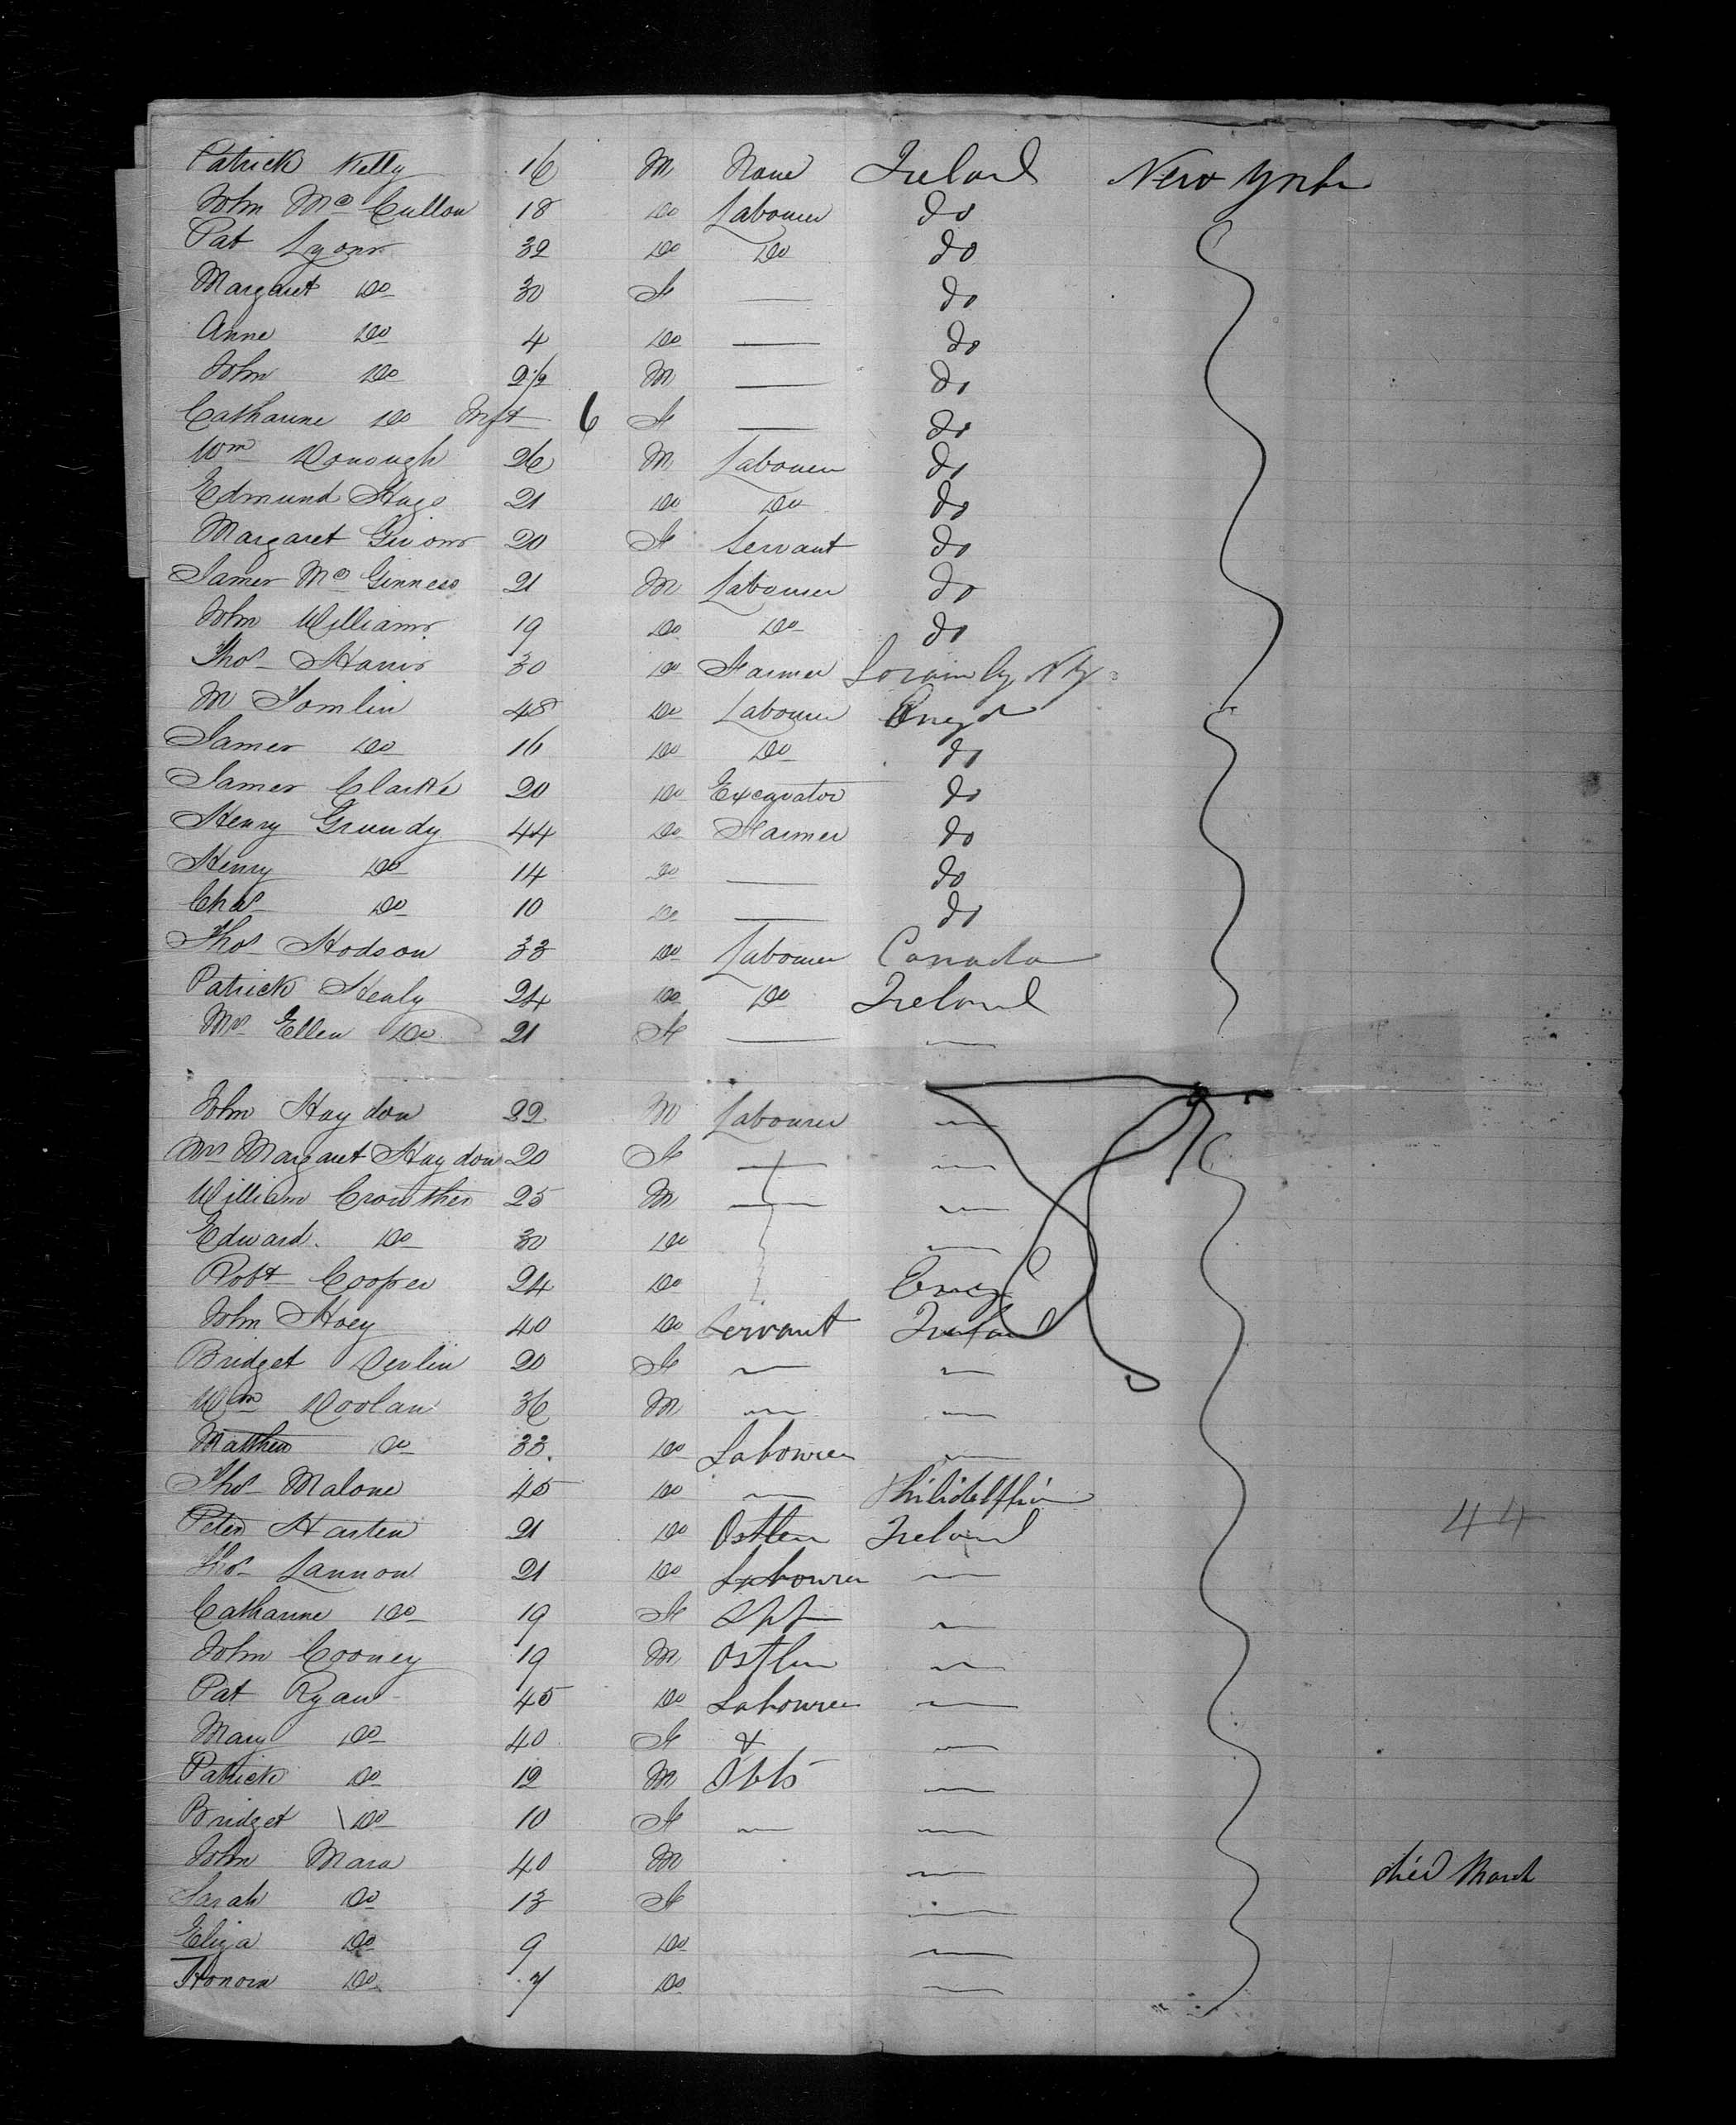 Patrick Kelly 16 M None Ireland New York
John Mc Cullow 18 Do Labourer do
Pat Lyons 32 Do Do do
Margaret Do 30 F — do
Anne Do 4 Do — do
John Do 2½ M — do
Catharine Do Inft 6 F — do
Wm Donough 26 M Labourer do
Edmund 21 Do Do do
Margaret 20 F Servant do
James Mc Ginness 21 M Labourer do
John Williams 19 Do Do do
Thos Harris 30 Do Farmer
M Tomlin 48 Do Labourer Engd
James Do 16 Do Do do
James Clarke 20 Do Excavator do
Henry Grundy 44 Do Farmer do
Henry Do 14 Do — do
Chas Do 10 Do — do
Thos Hodson 33 Do Labourer Canada
Patrick Healy 24 Do Do Ireland
Mrs Ellen Do 21 F — —
John Haydon 22 M Labourer —
Mrs Margaret Haydon 20 F — —
William Crowther 25 M — —
Edward Do 30 Do —
Robt Cooper 24 Do Eng
John Hoey 40 Do Servant Ireland
Bridget Devlin 20 F — —
Wm Doolan 36 M — —
Matthew Do 33 Do Labourer —
Thos Malone 45 Do — Philidelphia 44
Peter Harten 21 Do Ostler Ireland
Thos Lannon 21 Do Labourer —
Catharine Do 19 F —
John Cooney 19 M Ostler —
Pat Ryan 45 Do Labourer —
Mary Do 40 F & —
Patrick Do 12 M —
Bridget Do 10 F — —
John Mara 40 M — died March
Sarah Do 13 F —
Eliza Do 9 Do —
Honora Do 7 Do —